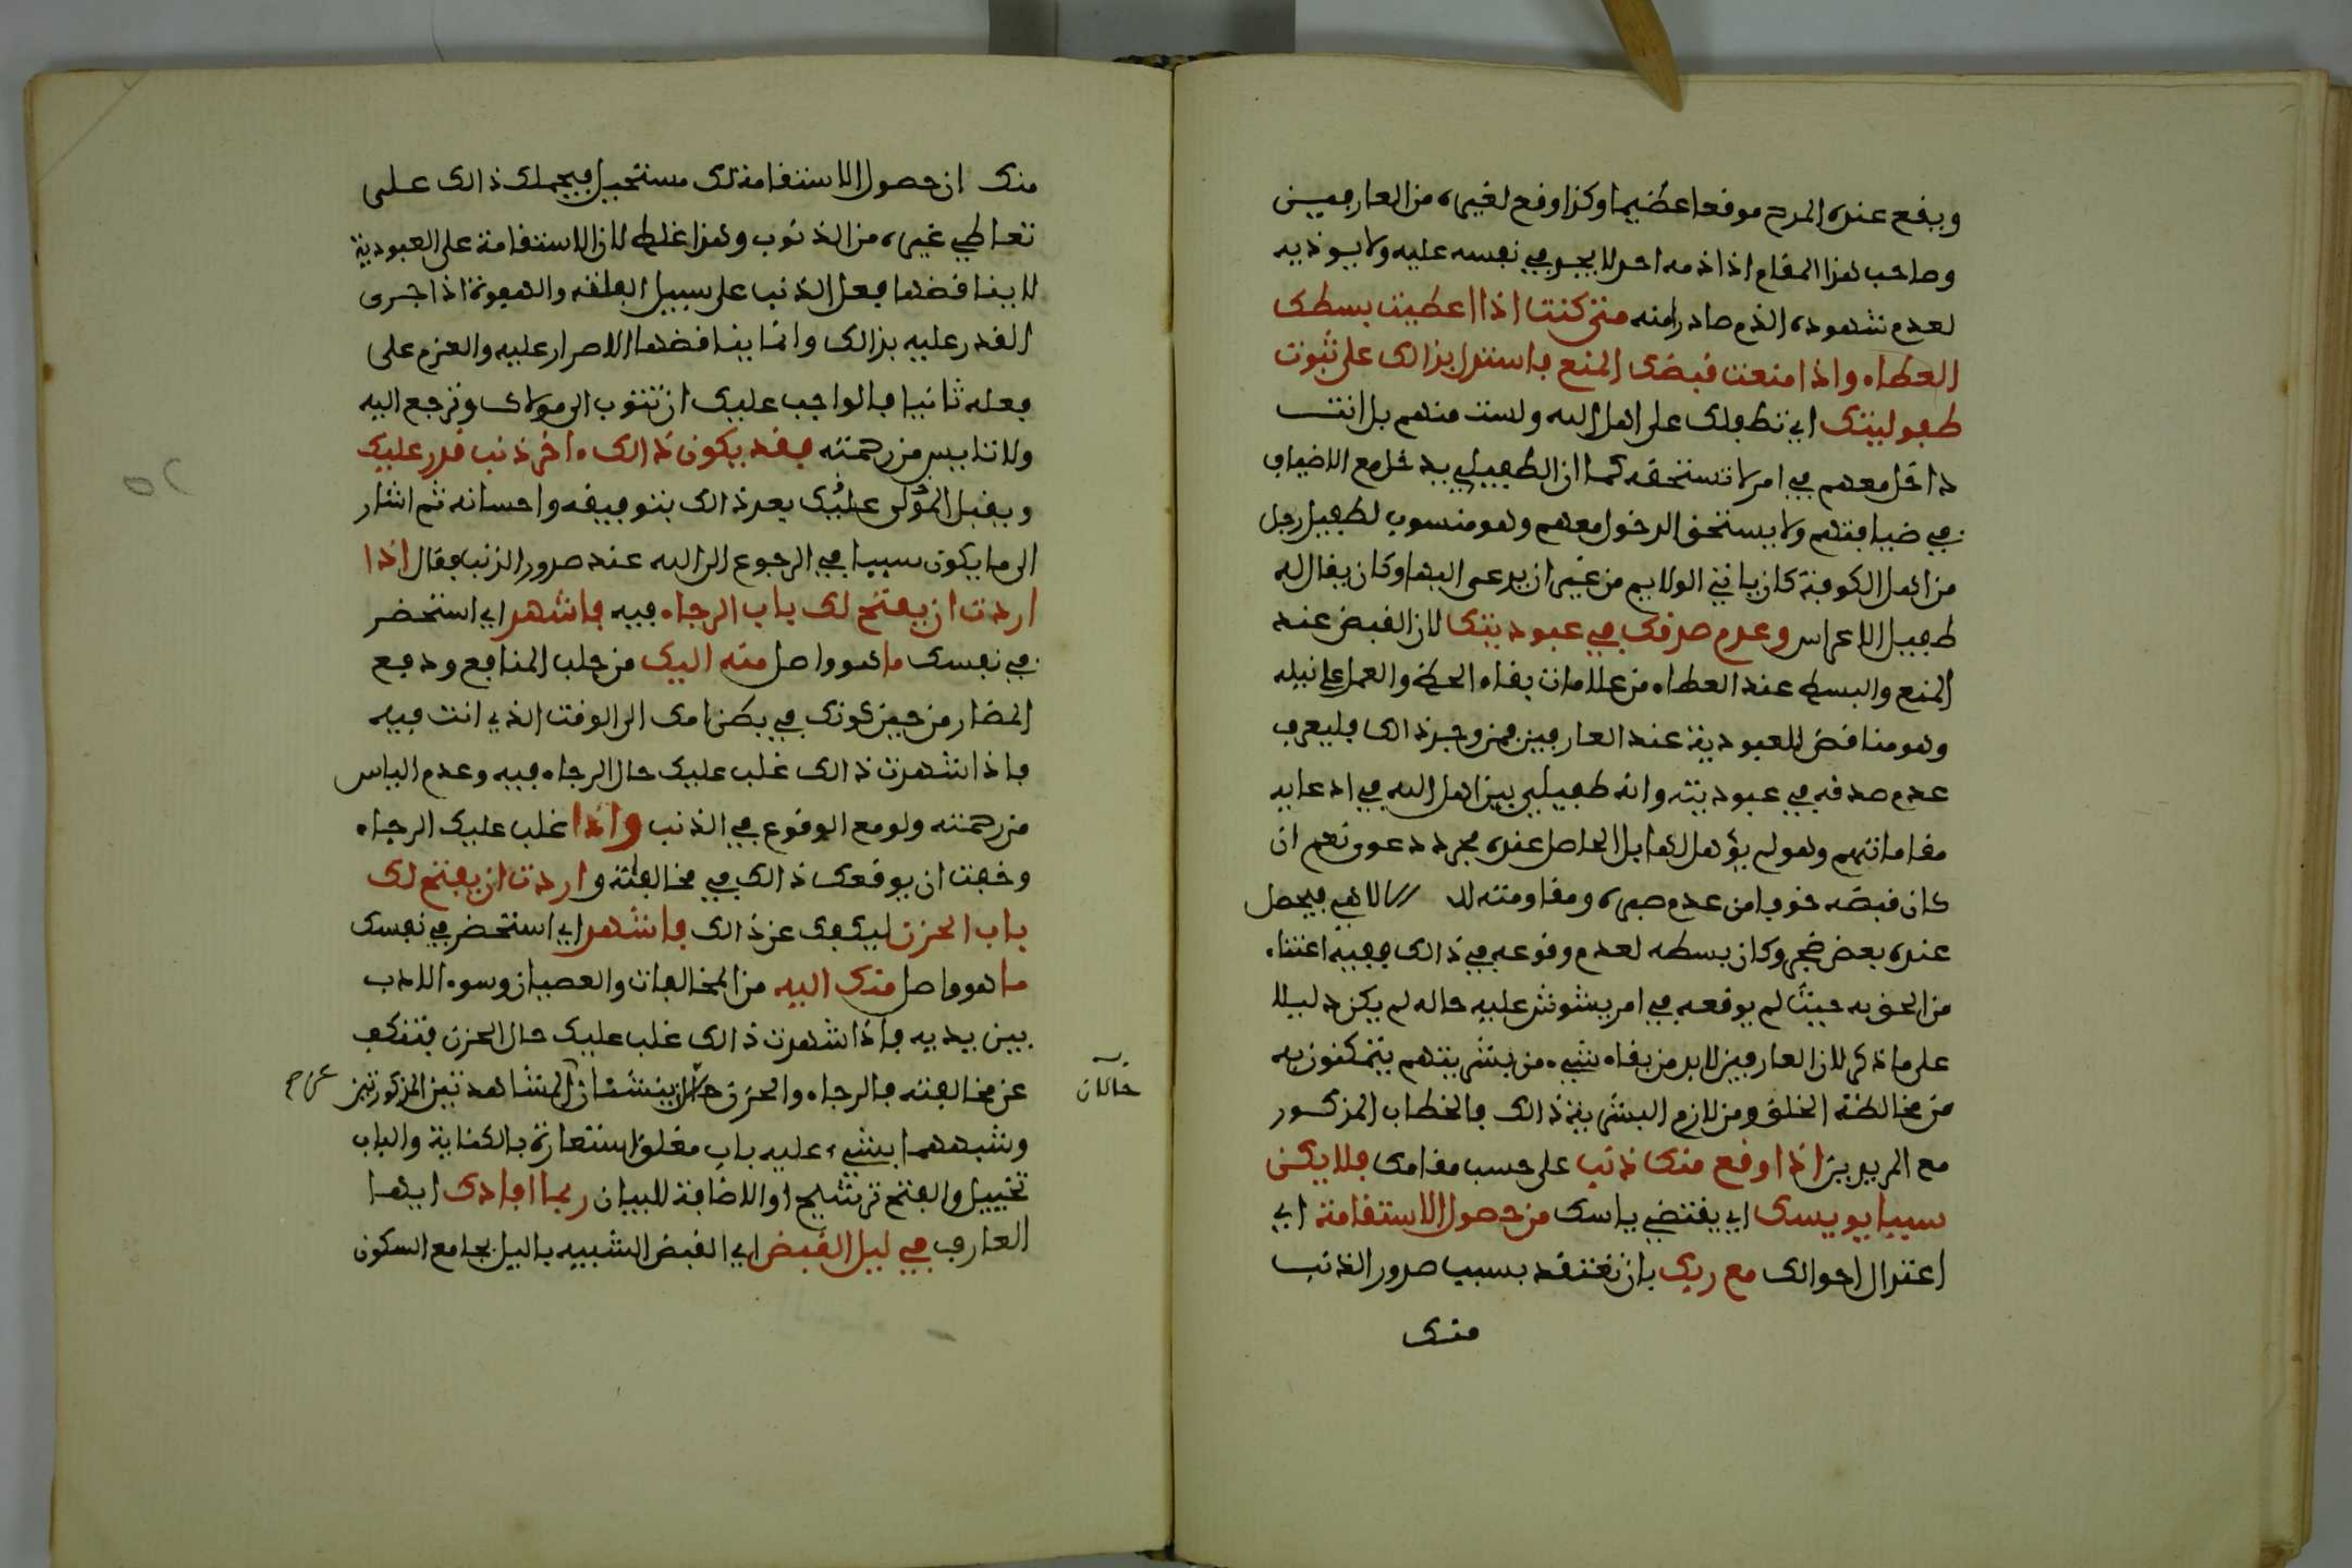 ويقع عنده المدح موقعا عظيما وكذا وقع لغيره من العارفين
وصاحب هذا المقام اذا ذمه احد لا يجد في نفسه عليه ولا يوذيه
لعدم شهوده الذم صادرا منه متى كنت اذا اعطيت بسطك
العطاء واذا منعت قبضك المنع فاستدل بذالك على ثبوت
طفوليتك اي تطفلك على اهل الله ولست منهم بل انت
داخل معهم في امر لا تستحقه كما ان الطفيلي يدخل مع الاضياف
في ضيافتهم ولا يستحق الدخول معهم وهو منسوب لطفيل رجل
من اهل الكوفة كان ياتي الولايم من غير ان يدعى اليها وكان يقال له
طفيل الاعراس وعدم صدقك في عبوديتك لان القبض عند
المنع والبسط عند العطاء من علامات بقاء الحظ والعمل على نيله
وهو مناقض للعبودية عند العارفين فمن وجد ذالك فليعرف
عدم صدقه في عبوديته وانه طفيلي بين اهل الله في ادعايه
مقاماتهم وهو لم يؤهل لها بل الحاصل عنده مجرد دعوى نعم ان
كان قبضه خوفا من عدم صبره ومقاومته لل // لالاهي فيحصل
عنده بعض ضجر وكان بسطه لعدم وقوعه في ذالك ففيه اعتناء
من الحق به حيث لم يوقعه في امر يشوش عليه حاله لم يكن دليلا
على ما ذكر لان العارفين لابد من بقاء شيء من بشريتهم يتمكنون به
من مخالطة الخلق ومن لازم البشرية ذالك فالخطاب المذكور
مع المريدين اذا وقع منك ذنب على حسب مقامك فلا يكن
سببا يويسك اي يقتضي ياسك من حصول الاستقامة اي
اعتدال احوالك مع ربك بان تعتقد بسبب صدور الذنب
منك
منك ان حصول الاستقامة لك مستحيل فيحملك ذالك على
تعاطي غيره من الذنوب وهذا غلط لان الاستقامة على العبودية
لا يناقضها فعل الذنب على سبيل الفلتة والهفوة اذا جرى
القدر عليه بذالك وانما يناقضها الاصرار عليه والعزم على
فعله ثانيا فالواجب عليك ان تتوب الى مولاك وترجع اليه
ولا تايس من رحمته فقد يكون ذالك ءاخر ذنب قدر عليك
ويقبل المولى عليك بعد ذالك بتوفيقه واحسانه ثم اشار
الى ما يكون سببا في الرجوع الى الله عند صدور الذنب فقال اذا
اردت ان يفتح لك باب الرجاء فيه فاشهد اي استحضر
في نفسك ما هو واصل منه اليك من جلب المنافع ودفع
المضار من حين كونك في بطن امك الى الوقت الذي انت فيه
فاذا شهدت ذالك غلب عليك حال الرجاء فيه وعدم الياس
من رحمته ولو مع الوقوع في الذنب واذا غلب عليك الرجاء
وخفت ان يوقعك ذالك في مخالفته واردت ان يفتح لك
باب الحزن ليكفك عن ذالك فاشهد اي استحضر في نفسك
ما هو واصل منك اليه من المخالفات والعصيان وسوء الادب
بين يديه فاذا شهدت ذالك غلب عليك حال الحزن فتنكف
عن مخالفته فالرجاء والحزن حالان ينشئان المشاهدتين المذكورتين
حالان
عن ح
وشبههما بشيء عليه باب مغلق استعارة بالكناية والباب
تخييل والفتح ترشيح او الاضافة للبيان ربما افادك ايها
العارف في ليل القبض اي القبض الشبيه باليل بجامع السكون
٥٢